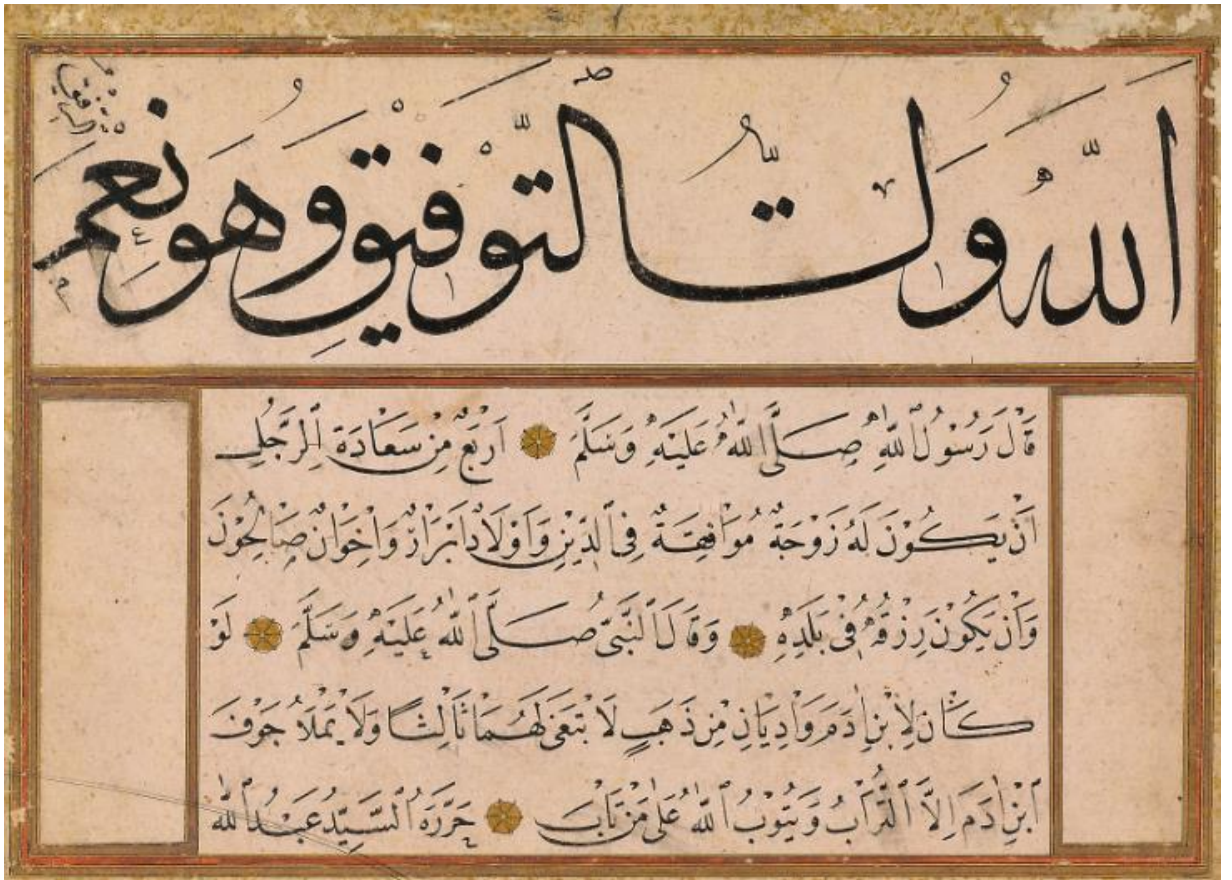 اَللّٰهُ وَلِيُّ التَّوْفِيقِ وَهُوَ نِعْمَ
الرفيق
قَالَ رَسُولُ اللّٰهِ صَلَّى اللّٰهُ عَلَيْهِ وَسَلَّمَ اَرْبَعٌ مِنْ سَعَادَةِ الرَّجُلِ
اَنْ يَكُوْنَ لَهُ زَوْجَةٌ مُوَافِقَةٌ فِى الدِّيْنِ وَاَوْلَادٌ اَبْرَارٌ وَاِخْوَانٌ صَالِحُوْنَ
وَاَنْ يَكُوْنَ رِزْقُهُ فِى بَلَدِهِ وَقَالَ النَّبِىُّ صَلَّى اللّٰهُ عَلَيْهِ وَسَلَّمَ لَوْ
كَانَ لِابْنِ اٰدَمَ وَادِيَانِ مِنْ ذَهَبٍ لَابْتَغٰى لَهُمَا ثَالِثًا وَلَا يَمْلَاُ جَوْفَ
ابْنِ اٰدَمَ اِلَّا التُّرَابُ وَيَتُوْبُ اللّٰهُ عَلٰى مَنْ تَابَ حَرَّرَهُ السَّيِّدُ عَبْدُ اللّٰهِ